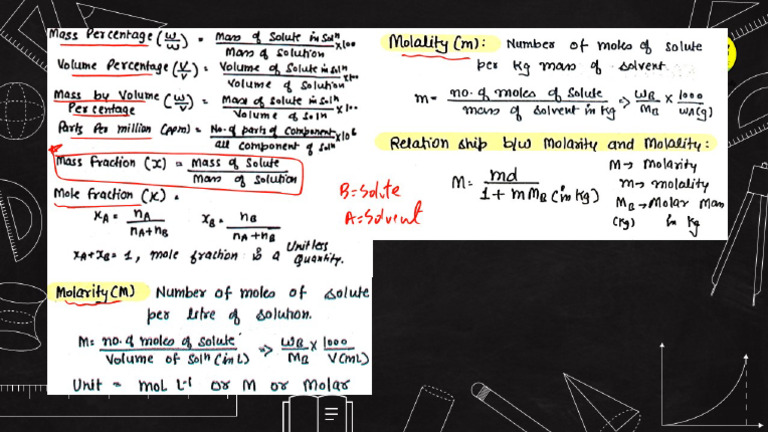 Mass Percentage (w/w) = Mass of Solute in Solⁿ / Mass of Solution ×100
Volume Percentage (V/V) = Volume of Solute in Solⁿ / Volume of Solution ×100
Mass by Volume Percentage (w/V) = Mass of Solute in Solⁿ / Volume of Solⁿ ×100
Parts Per million (ppm) = No. of parts of Component / all component of Solⁿ ×10⁶
Mass Fraction (x) = Mass of Solute / Mass of Solution
Mole Fraction (x) =
xA = nA / nA+nB xB = nB / nA+nB
xA+xB = 1, mole fraction is a Unitless Quantity.
B=Solute
A=Solvent
Molarity(M) Number of moles of solute
per litre of solution.
M= no. of moles of solute / Volume of Solⁿ (in L) => WB/MB × 1000/V(mL)
Unit = mol L⁻¹ or M or Molar
Molality (m): Number of moles of solute
per kg mass of solvent.
m= no. of moles of Solute / mass of Solvent in kg => WB/MB × 1000/WA(g)
Relation ship b/w Molarity and Molality:
M= md / 1+mMB (in kg)
M→ Molarity
m→ molality
MB→Molar Mass
(kg) in kg